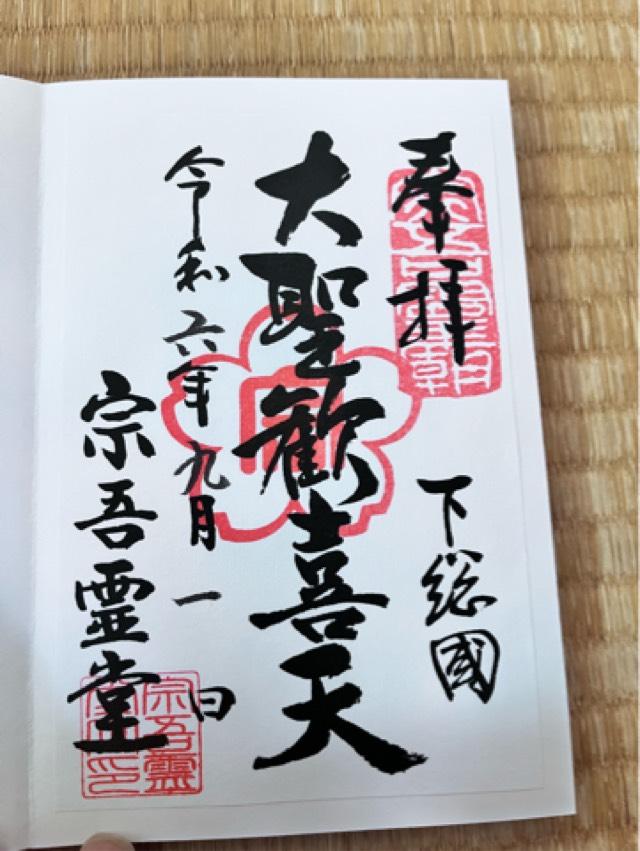 奉拝
下総國
大聖歓喜天
令和六年九月一日
宗吾霊堂
宗吾靈堂之印